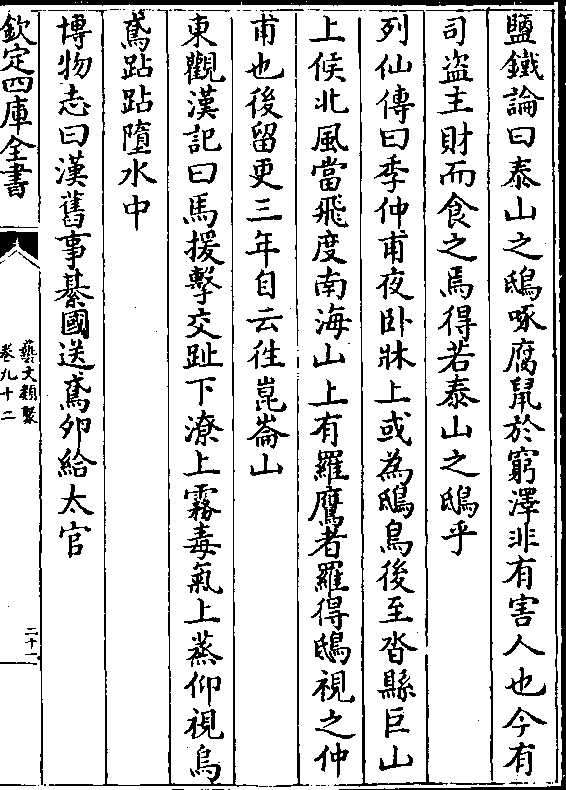 鹽鐵論曰泰山之鴟啄腐鼠於窮澤非有害人也今有
司盗主財而食之焉得若泰山之鴟乎
列仙傳曰季仲甫夜卧牀上或為鴟鳥後至沓縣巨山
上候北風當飛度南海山上有羅鷹者羅得鴟視之仲
甫也後留更三年自云徃崑崙山
東觀漢記曰馬援擊交趾下潦上霧毒氣上蒸仰視烏
鳶跕跕墮水中
博物志曰漢舊事綦國送鳶卵給太官
欽定四庫全書
藝文類聚
卷九十二
二十一